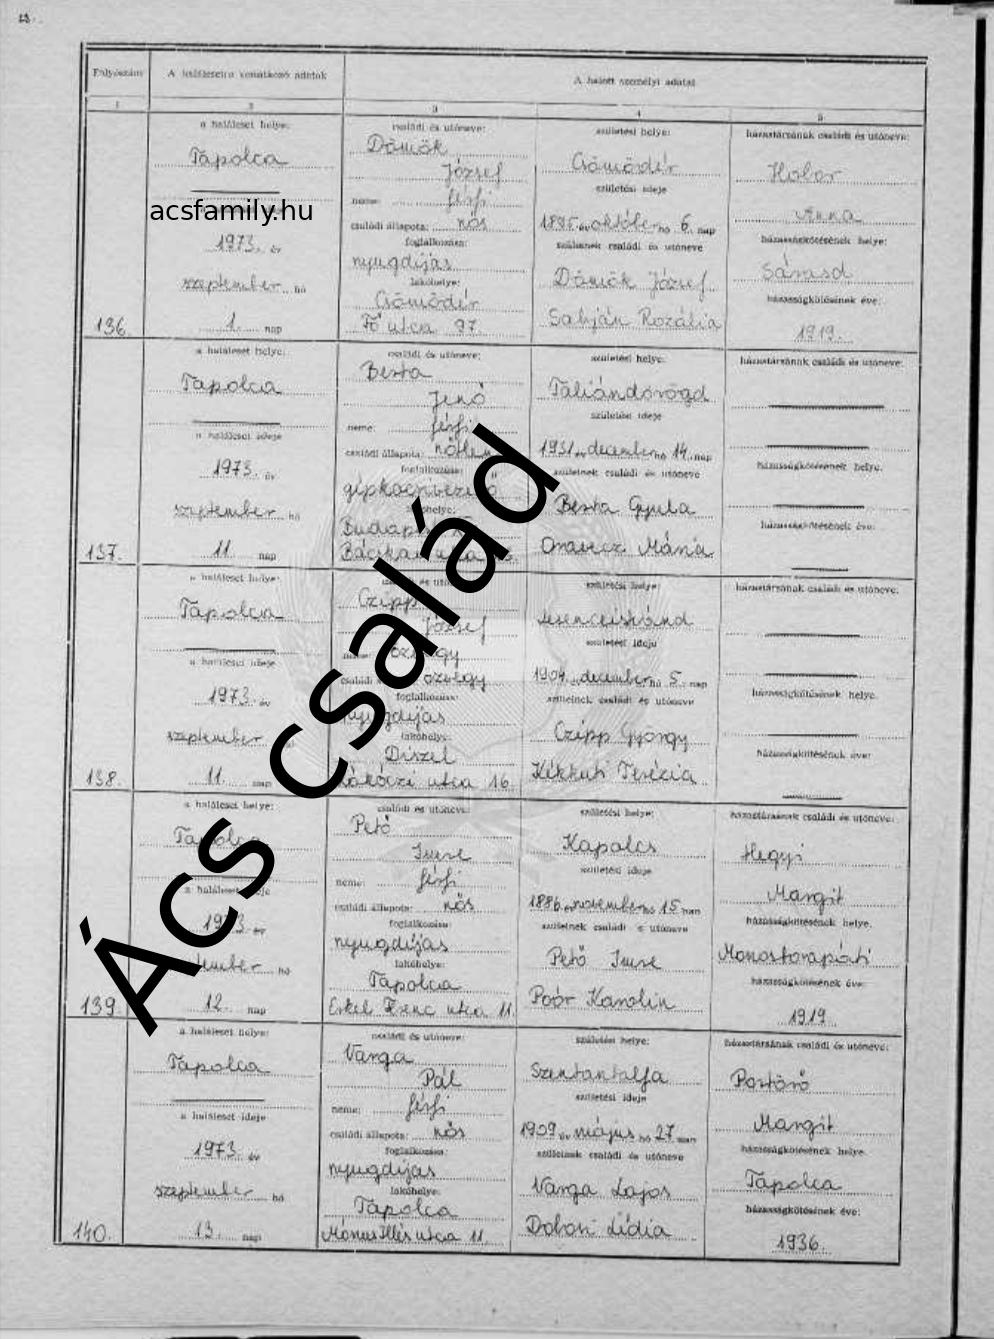 Folyószám
A halálesetre vonatkozó adatok
A halott személyi adatai
1
2
3
4
5
136.
a haláleset helye:
Tapolca
1973. év
szeptember hó
1. nap
családi és utóneve:
Dömök
József
neme: férfi
családi állapota: nős
foglalkozása:
nyugdíjas
lakóhelye:
Csömödér
Fő utca 97.
születési helye:
Csömödér
születési ideje
1895 év október hó 6. nap
szüleinek családi és utóneve
Dömök József
Sabján Rozália
házastársának családi és utóneve:
Anna
házasságkötésének helye:
Sárasd
házasságkötésének éve:
1919.
137.
a haláleset helye:
Tapolca
a haláleset ideje
1973. év
szeptember hó
11. nap
családi és utóneve:
Jenő
neme: férfi
családi állapota: nőtlen
foglalkozása:
születési helye:
Taliándörögd
születési ideje
1931 év december hó 14. nap
szüleinek családi és utóneve
Gyula
Mária
házastársának családi és utóneve:
házasságkötésének helye.
házasságkötésének éve:
138.
a haláleset helye:
Tapolca
a haláleset ideje
1973. év
szeptember
11. nap
Czipp
József
özvegy
foglalkozása:
nyugdíjas
lakóhelye:
Diszel
Rákóczi utca 16.
születési helye:
Lesenceistvánd
születési ideje
1904. december hó 5. nap
szüleinek családi és utóneve
Czipp György
Kékkuti Terézia
házastársának családi és utóneve:
házasságkötésének helye.
házasságkötésének éve:
139.
a haláleset helye:
Tapolca
a haláleset ideje
1973 év
szeptember hó
12. nap
családi és utóneve:
Pető
Imre
neme: férfi
családi állapota: nős
foglalkozása:
nyugdíjas
lakóhelye:
Tapolca
Erkel Ferenc utca 11.
születési helye:
Kapolcs
születési ideje
1886. év november hó 15. nap
szüleinek családi és utóneve
Pető Imre
Poór Karolin
házastársának családi és utóneve:
Hegyi
Margit
házasságkötésének helye.
Monostorapáti
házasságkötésének éve:
1919
140.
a haláleset helye:
Tapolca
a haláleset ideje
1973. év
szeptember hó
13. nap
családi és utóneve:
Varga
Pál
neme: férfi
családi állapota: nős
foglalkozása:
nyugdíjas
lakóhelye:
Tapolca
Mónus Illés utca 11.
születési helye:
Szentantalfa
születési ideje
1909 év május hó 27. nap
szüleinek családi és utóneve
Varga Lajos
Dobosi Lídia
házastársának családi és utóneve:
Margit
házasságkötésének helye.
Tapolca
házasságkötésének éve:
1936.
acsfamily.hu
Ács család